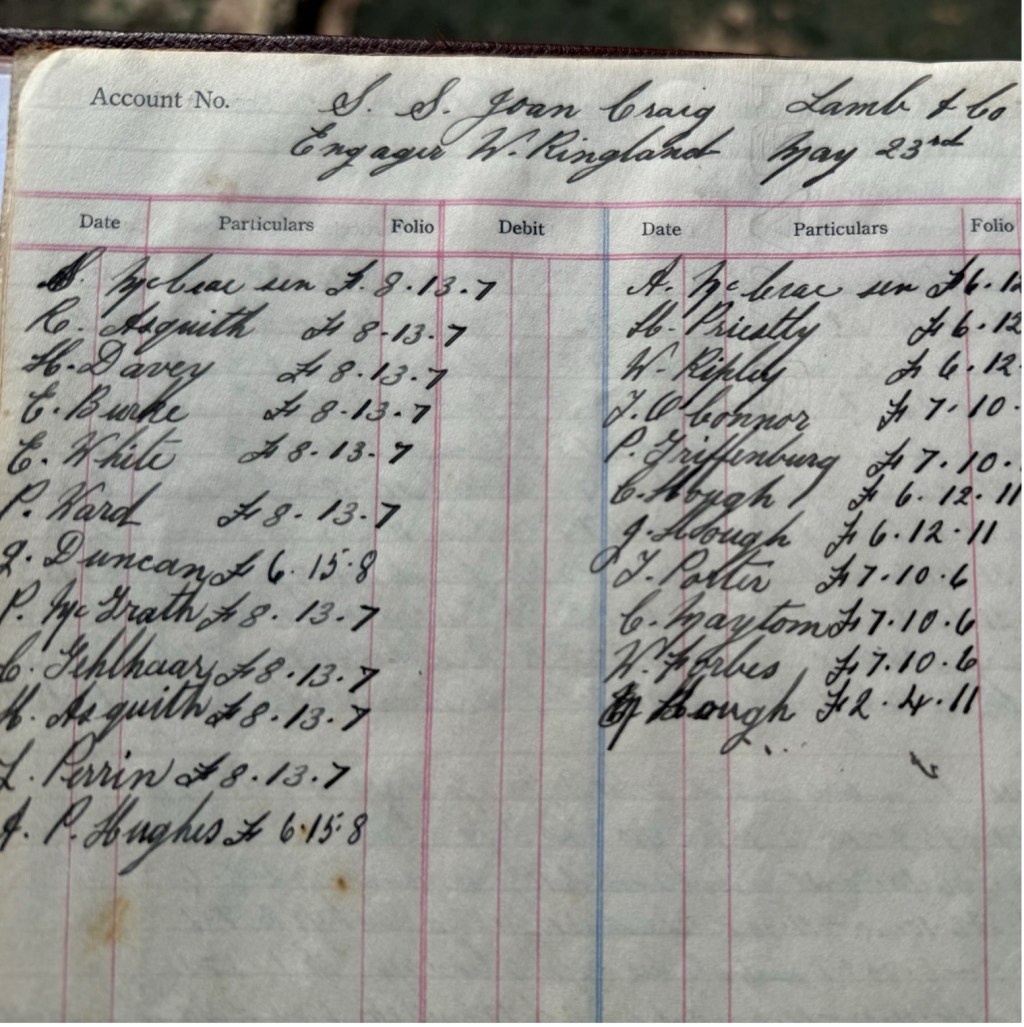 Account No. S. S. Joan Craig Lamb & Co
Engager W. Ringland May 23rd
Date Particulars Folio Debit Date Particulars Folio
S. McCrae sen £ 8.13.7
R. Asquith £ 8-13.7
H. Davey £ 8.13.7
E. Burke £ 8-13.7
E. White £ 8-13.7
P. Ward £ 8-13.7
J. Duncan £ 6.15.8
P. McGrath £ 8.13.7
C. Gehlhaar £ 8.13.7
H. Asquith £ 8.13.7
L. Perrin £ 8.13.7
A. P. Hughes £ 6.15.8
A. McCrae sen £ 6.12
H. Priestly £ 6.12
W. Ripley £ 6.12.
J. O'Connor £ 7.10.
P. Griffenburg £ 7.10.
C. Hough £ 6.12.11
J. Hough £ 6.12.11
J. Porter £ 7.10.6
C. Maytom £ 7.10.6
W. Forbes £ 7.10.6
Hough £ 2.4.11